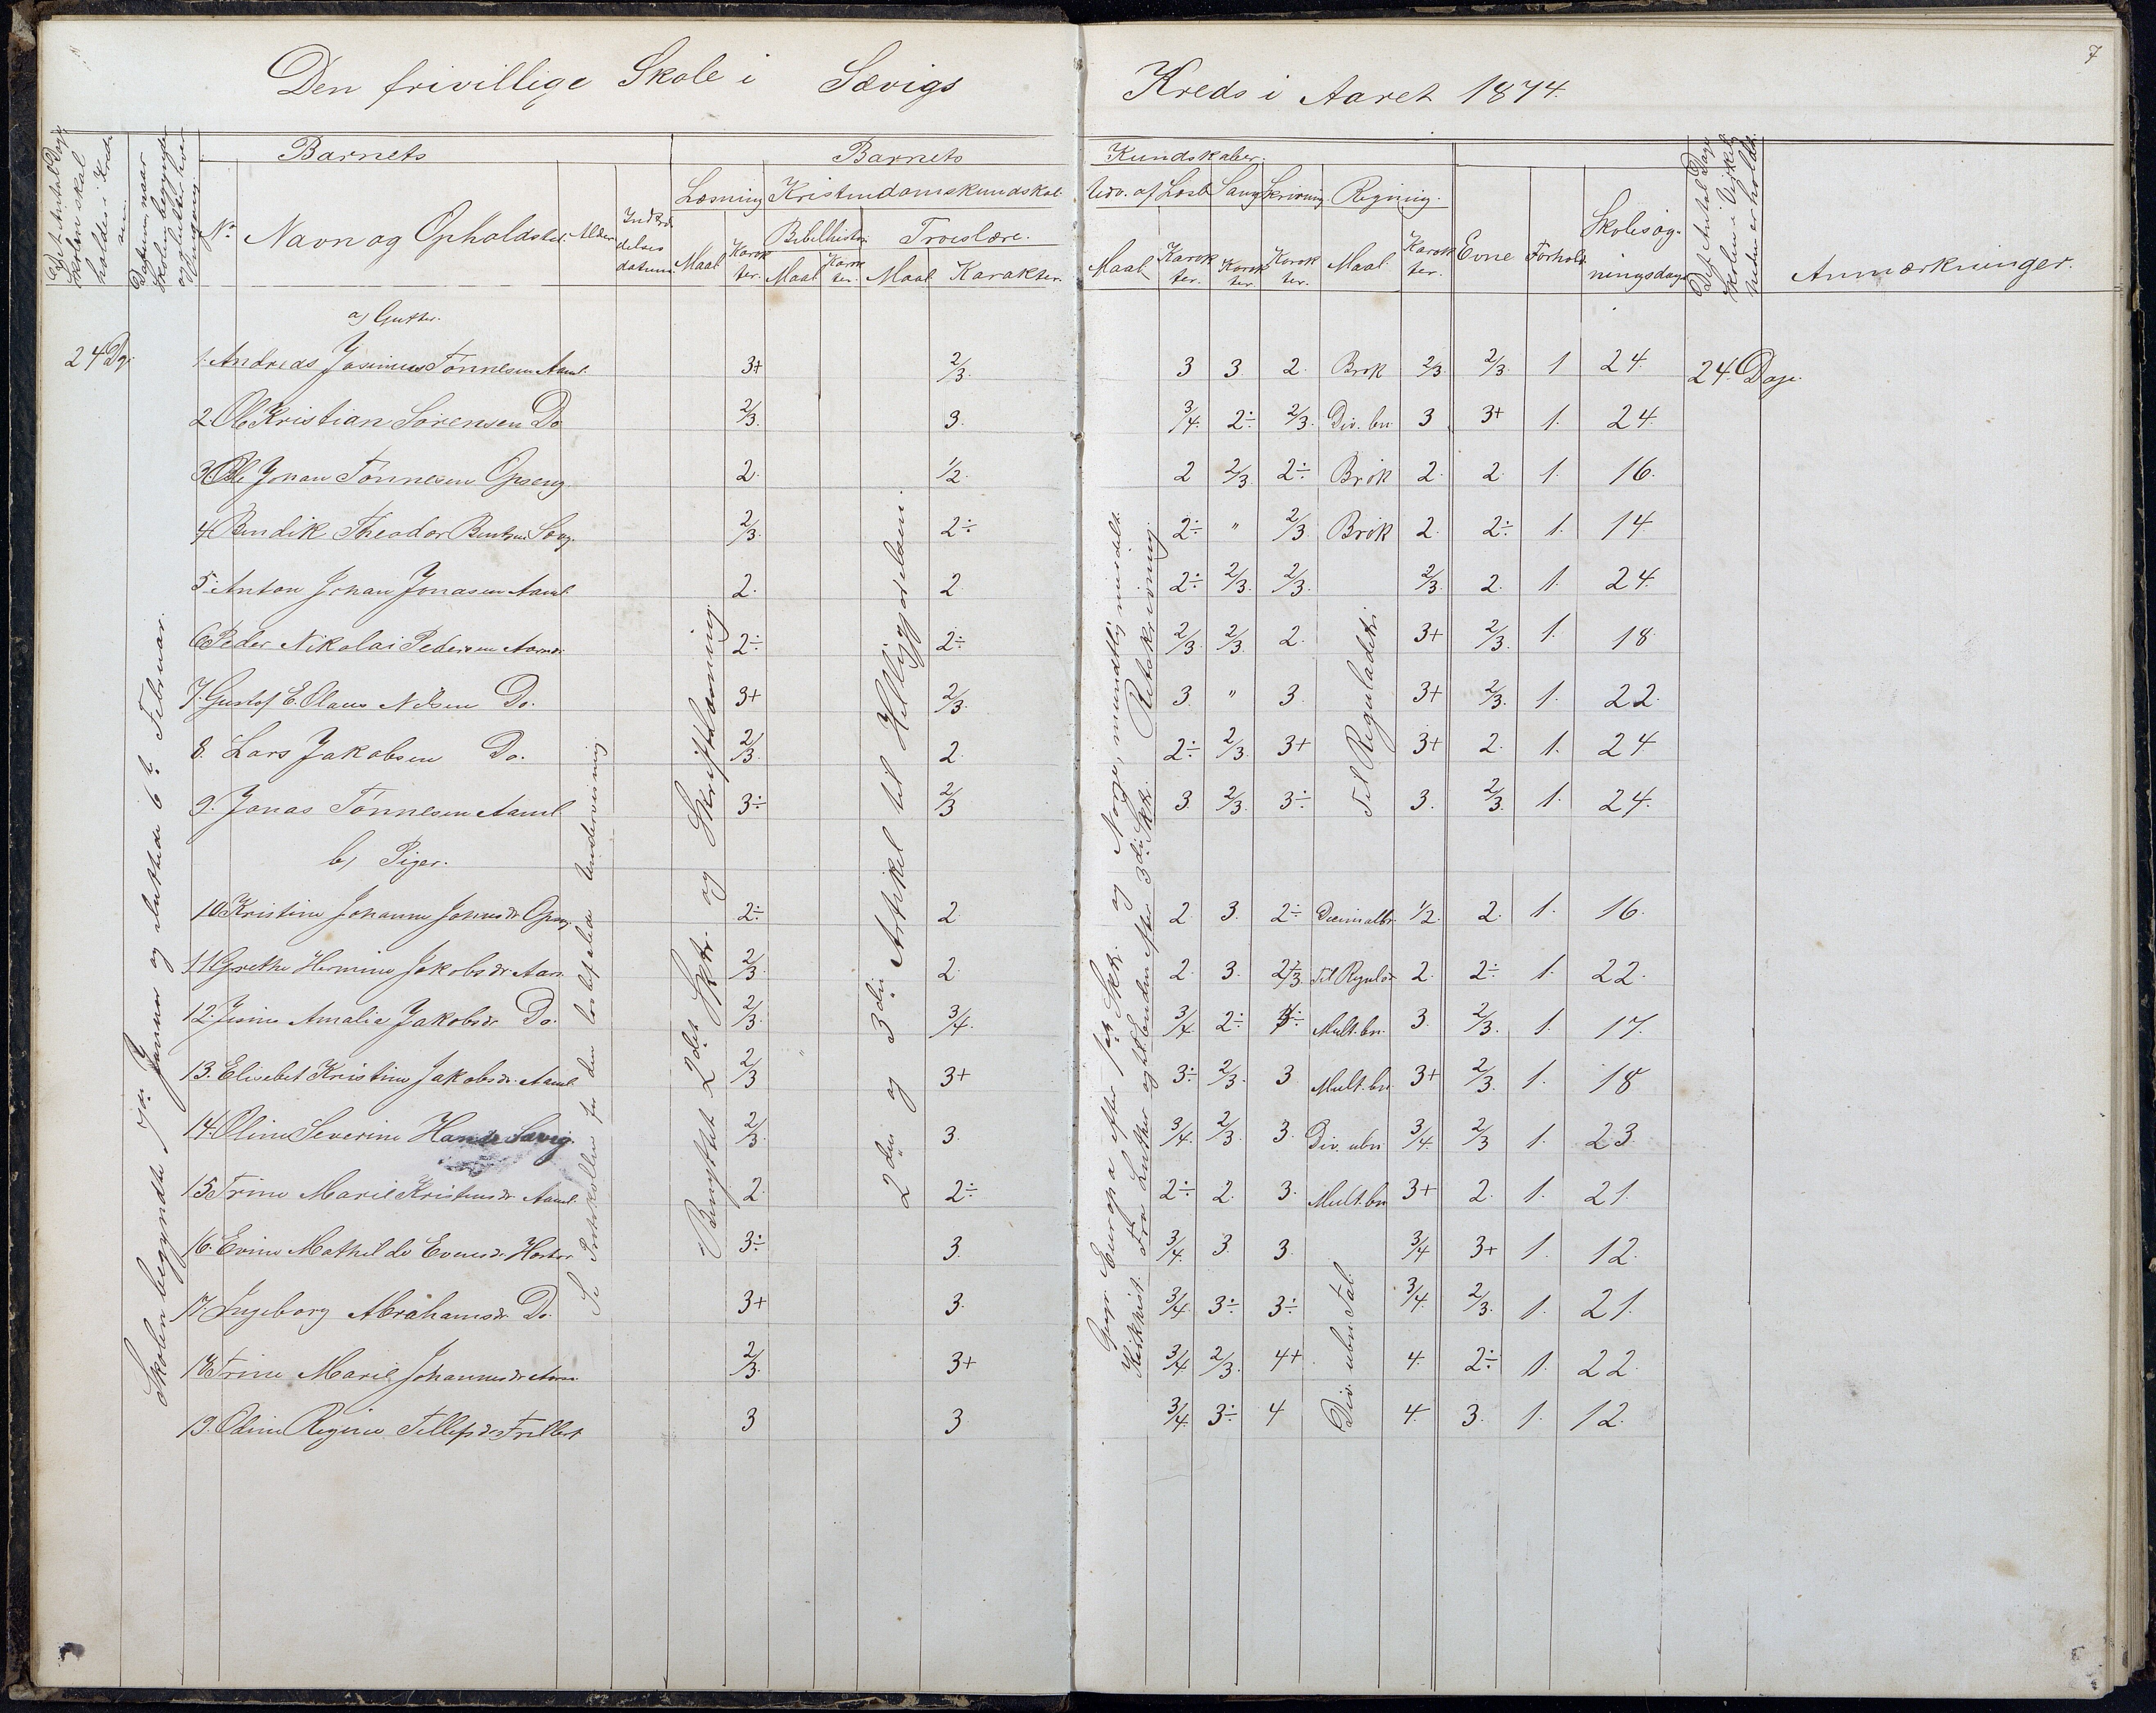 7
Den frivillige Skole i Sævigs Kreds i Aaret 1874.
Det Antal Dage Skolen skal holdes i Kredsen.
Datum, naar Skolen begyndte og sluttede hver Omgang
Barnets
Barnets
Kundskaber.
No
Navn og Opholdsted.
Alder
Indtrædelses datum
Læsning
Kristendomskundskab
Udv. af Læseb.
Sang
Skrivning.
Regning.
Maal
Karakter.
Bibelhistorie
Maal
Karakter.
Troeslære.
Maal
Karakter.
Maal
Karakter.
Karakter
Karakter.
Maal
Karakter.
Evne
Forhold
Skolesøgningsdage
Det Antal Dage Skolen i Virkeligheden er holdt.
Anmærkninger.
a) Gutter.
24 Dg. 1. Andreas Tønnesen Aaml. 3+ 2/3. 3 3. 2. Brøk 2/3. 2/3. 1 24. 24. Dage.
2 Ole Kristian Sørensen Do 2/3. 3. 3/4. 2÷ 2/3. Div. bn. 3 3+ 1. 24.
3. Ole Johan Tønnesen Opseng. 2. 1/2. 2 2/3. 2÷ Brøk 2. 2. 1. 16.
4 Bendik Theodor 2/3. 2÷ 2÷ " 2/3 Brøk 2. 2÷ 1. 14
5. Anton Johan Jonasen Aaml. 2. 2 2÷ 2/3. 2/3. 2/3. 2. 1. 24.
6. Peder Nikolai Pedersen 2÷ 2÷ 2/3. 2/3. 2. 3+ 2/3. 1. 18
7. Gustof E. Olaus Nilsen Do. 3+ 2/3. 3. " 3. 3+ 2/3. 1. 22.
8. Lars Jakobsen Do. 2/3. 2. 2÷ 2/3. 3+ 3+ 2. 1. 24
9. Jonas Tønnesen Aaml. 3÷ 2/3 3. 2/3. 3÷ 3. 2/3. 1. 24.
b) Piger.
10 Kristine Johanne 2÷ 2 2. 3. 2÷ Decimalbr. 1/2. 2. 1. 16.
11 Grethe Hermine Jakobsdr. 2/3. 2 2. 3. 2/3. Til Regulad. 2. 2÷ 1. 22.
12. Amalie Jakobsdr. Do. 2/3. 3/4. 3/4. 2÷ Mult. bn. 3. 2/3. 1. 17.
13. Elisebet Kristine Jakobsdr. Aaml. 2/3 3+ 3÷ 2/3. 3 Mult. bn. 3+ 2/3. 1. 18
14. Oline Severine Sævig. 2/3. 3. 3/4. 2/3. 3. Div. ubn. 3/4. 2/3 1. 23.
15 Trine Marie Kristensdr. Aaml. 2. 2÷ 2÷ 2. 3. Mult. bn 3+ 2. 1. 21.
16. Mathilde 3÷ 3. 3/4. 3. 3. 3/4 3+ 1. 12.
17. Ingeborg Abrahamsdr. Do. 3+ 3. 3/4. 3÷ 3÷ 3/4. 2/3. 1. 21.
18 Trine Marie Johannesdr. 2/3. 3+ 3/4. 2/3. 4+ 4. 2÷ 1. 22.
19. Regine 3 3. 3/4. 3÷ 4 4. 3. 1. 12.
Skolen begyndte 7de Januar og sluttede 6te Februar.
Se Protokollen for den lovbefalede Undervisning.
Benyttet 2det Sktr. og Skriftlæsning.
2den og 3die Artikel til Helliggjørelsen.
Geogr. Europa efter 1ste Skk. og Norge, mundtlig meddelt.
Kirkhist. Fra Luther og til Enden efter 3die Skk. Retskrivning.
Til Reguladetri
Div. ubn. Tal.